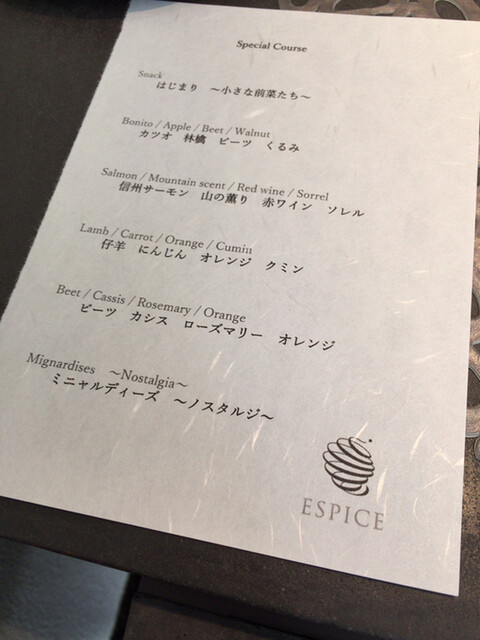 Special Course
Snack
はじまり ～小さな前菜たち～
Bonito / Apple / Beet / Walnut
カツオ 林檎 ビーツ くるみ
Salmon / Mountain scent / Red wine / Sorrel
信州サーモン 山の薫り 赤ワイン ソレル
Lamb / Carrot / Orange / Cumin
仔羊 にんじん オレンジ クミン
Beet / Cassis / Rosemary / Orange
ビーツ カシス ローズマリー オレンジ
Mignardises ～Nostalgia～
ミニャルディーズ ～ノスタルジ～
ESPICE